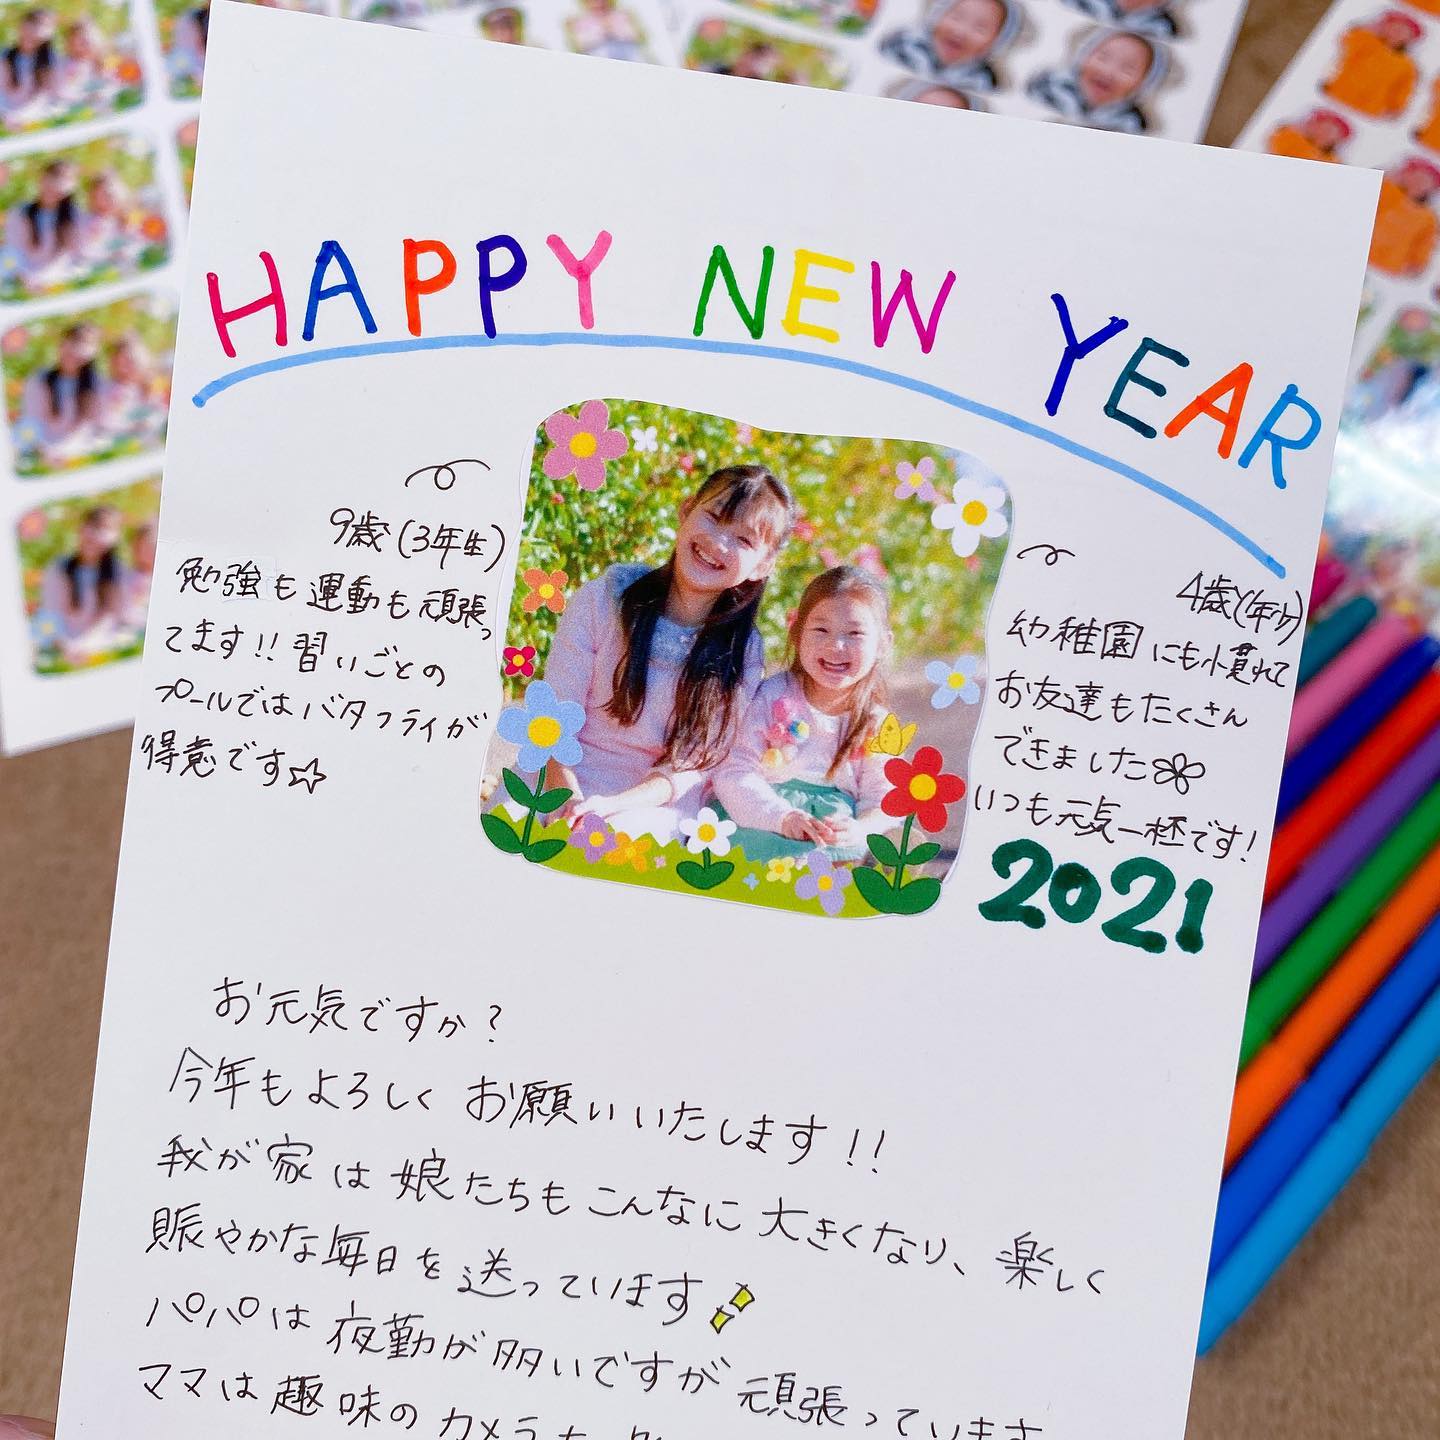 HAPPY NEW YEAR
9歳(3年生)
勉強も運動も頑張っ
てます!!習いごとの
プールではバタフライが
得意です☆
4歳(年少)
幼稚園にも慣れて
お友達もたくさん
できました
いつも元気一杯です!
2021
お元気ですか?
今年もよろしくお願いいたします!!
我が家は娘たちもこんなに大きくなり、楽しく
賑やかな毎日を送っています!
パパは夜勤が多いですが頑張っています
ママは趣味のカメラ